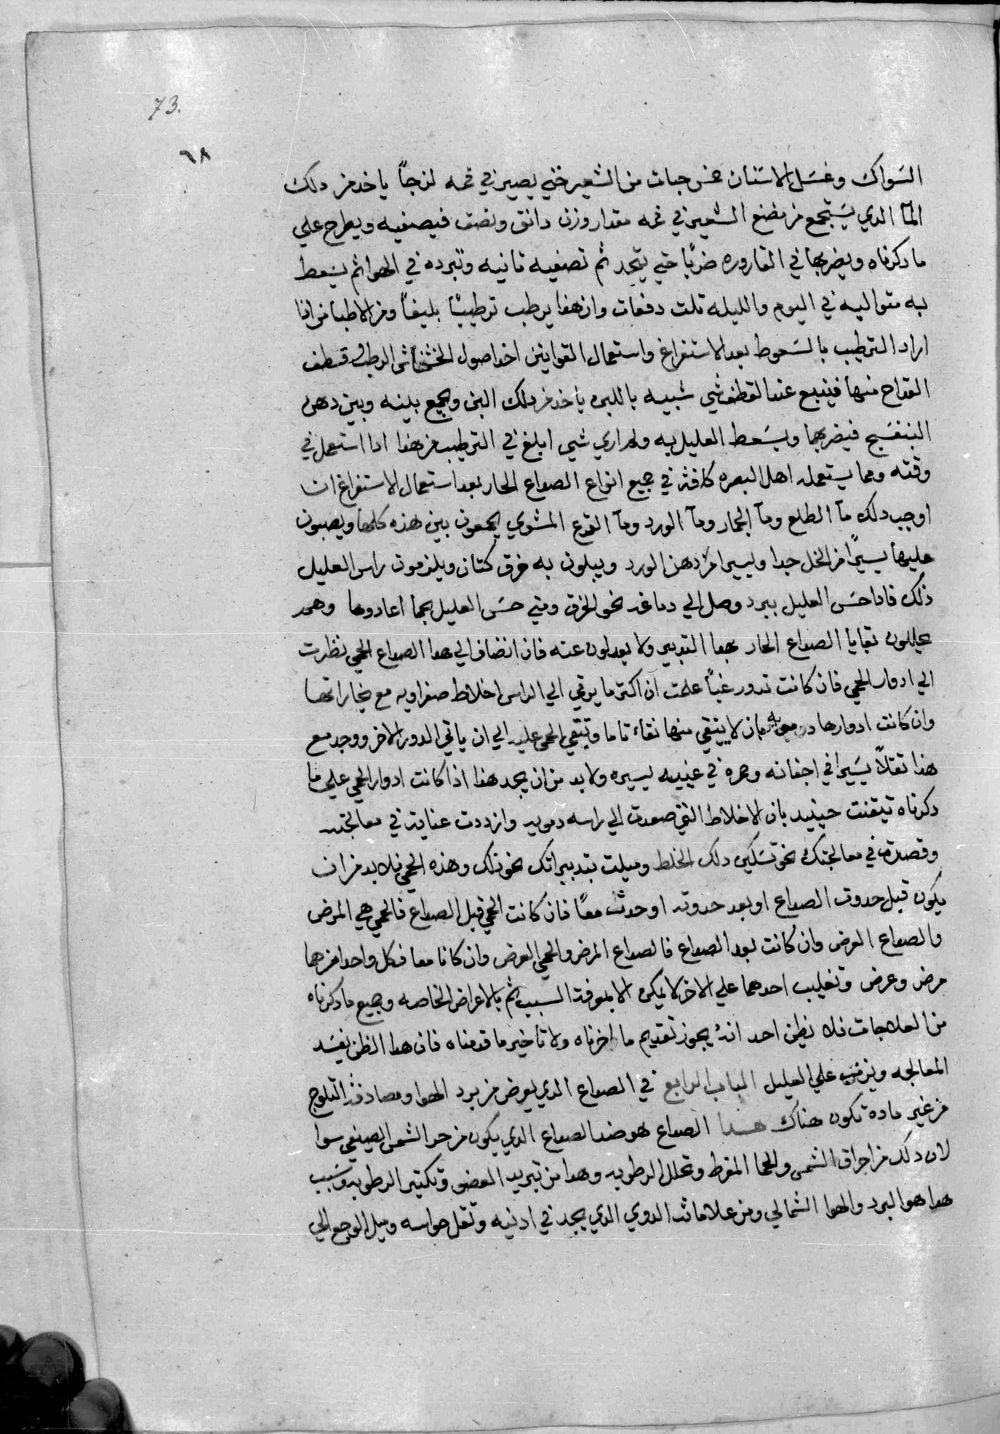 73.
٦٨
السواك وغسل الاسنان خمس حبات من الشعير حتي يصير في فمه لزجاً ياخد من دلك
المآ الدي يستجمع من مضغ الشعير في فمه مقدار وزن دانق ونصف فيصفيه ويطرح علي
ما دكرناه ويضربها في القاروره ضربًا حتي يتحد ثم تصفيه ثانيه وتبرده في الهوا ثم يسعط
به متواليه في اليوم والليله تلت دفعات وان هدا يرطب ترطيبًا بليغاً ومن الاطبا من ادا
اراد الترطيب بالسعوط بعد الاستفراغ واستعمال القوانين اخد اصول الخشخاش الرطب وقطف
القداح منها فينبع عند القطف شي شبيه باللبن ياخد من دلك البن ويجمع بينه وبين دهن
البنفسج فيضربهما ويسعط العليل به ولم اري شي ابلغ في الترطيب من هدا ادا استعمل في
وقته ومما يستعمله اهل البصره كافة في جميع انواع الصداع الحار بعد استعمال الاستفراغ ان
اوجب دلك مآ الطلع ومآ الجمار ومآ الورد ومآ القرع المشوي يجمعون بين هذه كلها ويصبون
عليها يسيرًا من الخل جدا ويسيرا من دهن الورد ويبلون به خرق كتان ويلزمون راس العليل
ذلك فادا حس العليل ببرد وصل الي دماغه نحو الخرق ومتي حس العليل بحما اعادوها وهم
يحللون بقايا الصداع الحار بهدا التدبير ولا يعدلون عنه فان انضاف الي هدا الصداع الحمي نظرت
الي ادوار الحمي فان كانت تدور غباً علمت ان اكثر ما يرقي الي الراس اخلاط صفراويه مع بخاراتها
وان كانت ادوارها دمويه بان لا ينقي منها نقاء تاما وتبقي الحمي عليه الي ان ياتي الدور الاخر ووجد مع
هذا ثقلاً يسيرا في اجفانه وحمره في عينيه يسيره ولا بد من ان يجد هذا اذا كانت ادوار الحمي علي ما
دكرناه تيقنت حينيد بان الاخلاط التي صعدت الي راسه دمويه وازددت عناية في معالجته
وقصدت في معالجتك نحو تسكين دلك الخلط وميلت بتدبيراتك نحو تلك وهذه الحمي فلا بد من ان
يكون قبل حدوث الصداع او بعد حدوثه او حدثت معًا فان كانت الحمي قبل الصداع فالحمي هي المرض
والصداع العرض وان كانت بعد الصداع فالصداع المرض والحمي العرض وان كانا معا فكل واحد منهما
مرض وعرض وتغليب احدهما علي الاخر لا يمكن الا بمعرفة السبب ثم بالاعراض الخاصه وجميع ما دكرناه
من العلاجات فلا يظن احد انهُ يجوز تقديم ما اخرناه ولا تاخير ما قدمناه فان هدا الظن يفسد
المعالجه ويزمن علي العليل الباب الرابع في الصداع الدي يعرض من برد الهوا ومصادفة الثلوج
من غير ماده تكون هناك هدا الصداع هو ضد الصداع الدي يكون من حر الشمس الصيفي سوا
لان دلك من احراق الشمس والحما المفرط وتحلل الرطوبه وهدا من تبريد العضو وتكتير الرطوبه وسبب
هدا هو البرد والهوا الشمالي ومن علاماته الدوي الدي يجد في ادنيه وثقل حواسه وميل الوجع الي